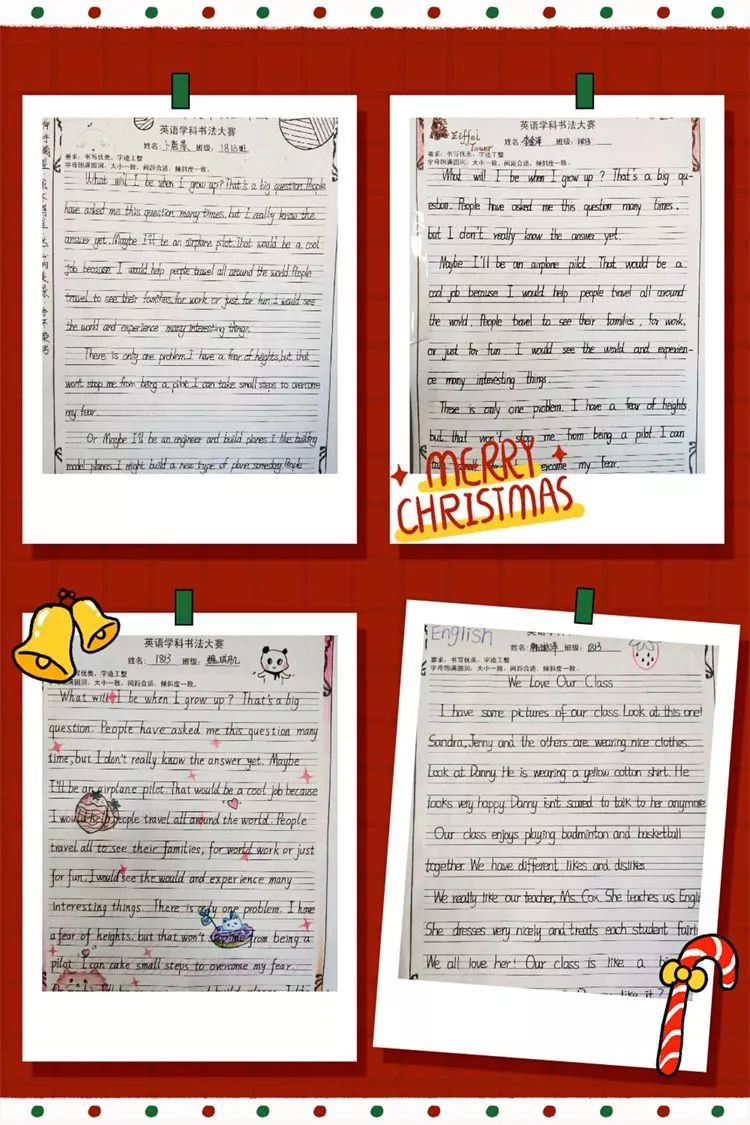 英语学科书法大赛
姓名: 班级: 1813班
要求：书写优美，字迹工整
字母饱满圆润，大小一致，间距合适，倾斜度一致。
What will I be when I grow up? That's a big question. People
have asked me this question many times, but I really know the
answer yet. Maybe I'll be an airplane pilot. That would be a cool
job because I would help people travel all around the world. People
travel to see their families, for work or just for fun. I would see
the world and experience many interesting things.
There is only one problem. I have a fear of heights, but that
won't stop me from being a pilot. I can take small steps to overcome
my fear.
Or Maybe I'll be an engineer and build planes. I like building
model planes. I might build a new type of plane someday. People
Eiffel
Tower
英语学科书法大赛
姓名: 班级: 1813
要求：书写优美，字迹工整
字母饱满圆润，大小一致，间距合适，倾斜度一致。
What will I be when I grow up? That's a big qu-
estion. People have asked me this question many times,
but I don't really know the answer yet.
Maybe I'll be an airplane pilot. That would be a
cool job because I would help people travel all around
the world. People travel to see their families, for work,
or just for fun. I would see the world and experien-
ce many interesting things.
There is only one problem. I have a fear of heights
but that won't stop me from being a pilot. I can
overcome my fear.
MERRY
CHRISTMAS
英语学科书法大赛
姓名: 1813 班级:
书写优美，字迹工整
字母饱满圆润，大小一致，间距合适，倾斜度一致。
What will I be when I grow up? That's a big
question. People have asked me this question many
time, but I don't really know the answer yet. Maybe
I'll be an airplane pilot. That would be a cool job because
I would help people travel all around the world. People
travel all to see their families, for world work or just
for fun. I would see the would and experience many
interesting things. There is only one problem. I have
a fear of heights. but that won't stop me from being a
pilot. I can cake small steps to overcome my fear.
English
姓名: 班级: 1813
要求：书写优美，字迹工整
字母饱满圆润，大小一致，间距合适，倾斜度一致。
We Love Our Class
I have some pictures of our class. Look at this one!
Sandra, Jenny and the others are wearing nice clothes.
Look at Danny. He is wearing a yellow cotton shirt. He
looks very happy. Danny isn't scared to talk to her anymore
Our class enjoys playing badminton and basketball
together. We have different likes and dislikes.
We really like our teacher, Ms. Cox. She teaches us Engli
She dresses very nicely and treats each student fairl
We all love her! Our class is like a bi
like it?